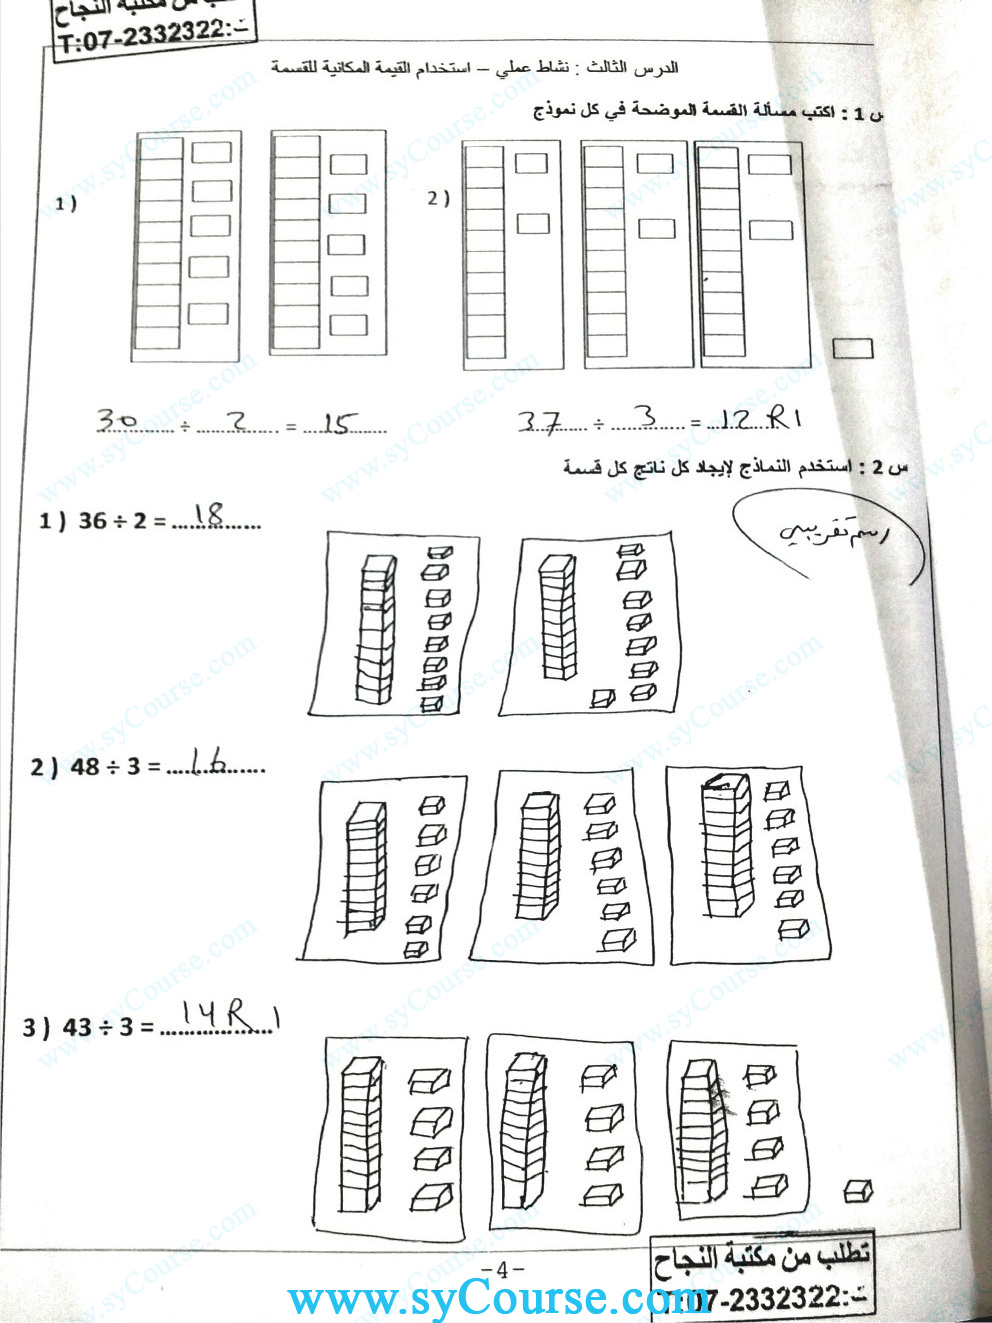 من مكتبة النجاح
ت:T:07-2332322
الدرس الثالث : نشاط عملي – استخدام القيمة المكانية للقسمة
س 1 : اكتب مسألة القسمة الموضحة في كل نموذج
1 )
2 )
30 ÷ 2 = 15
37 ÷ 3 = 12 R1
س 2 : استخدم النماذج لإيجاد كل ناتج كل قسمة
رسم تقريبي
1 ) 36 ÷ 2 = 18
2 ) 48 ÷ 3 = 16
3 ) 43 ÷ 3 = 14 R 1
تطلب من مكتبة النجاح
ت:T:07-2332322
-4-
www.syCourse.com